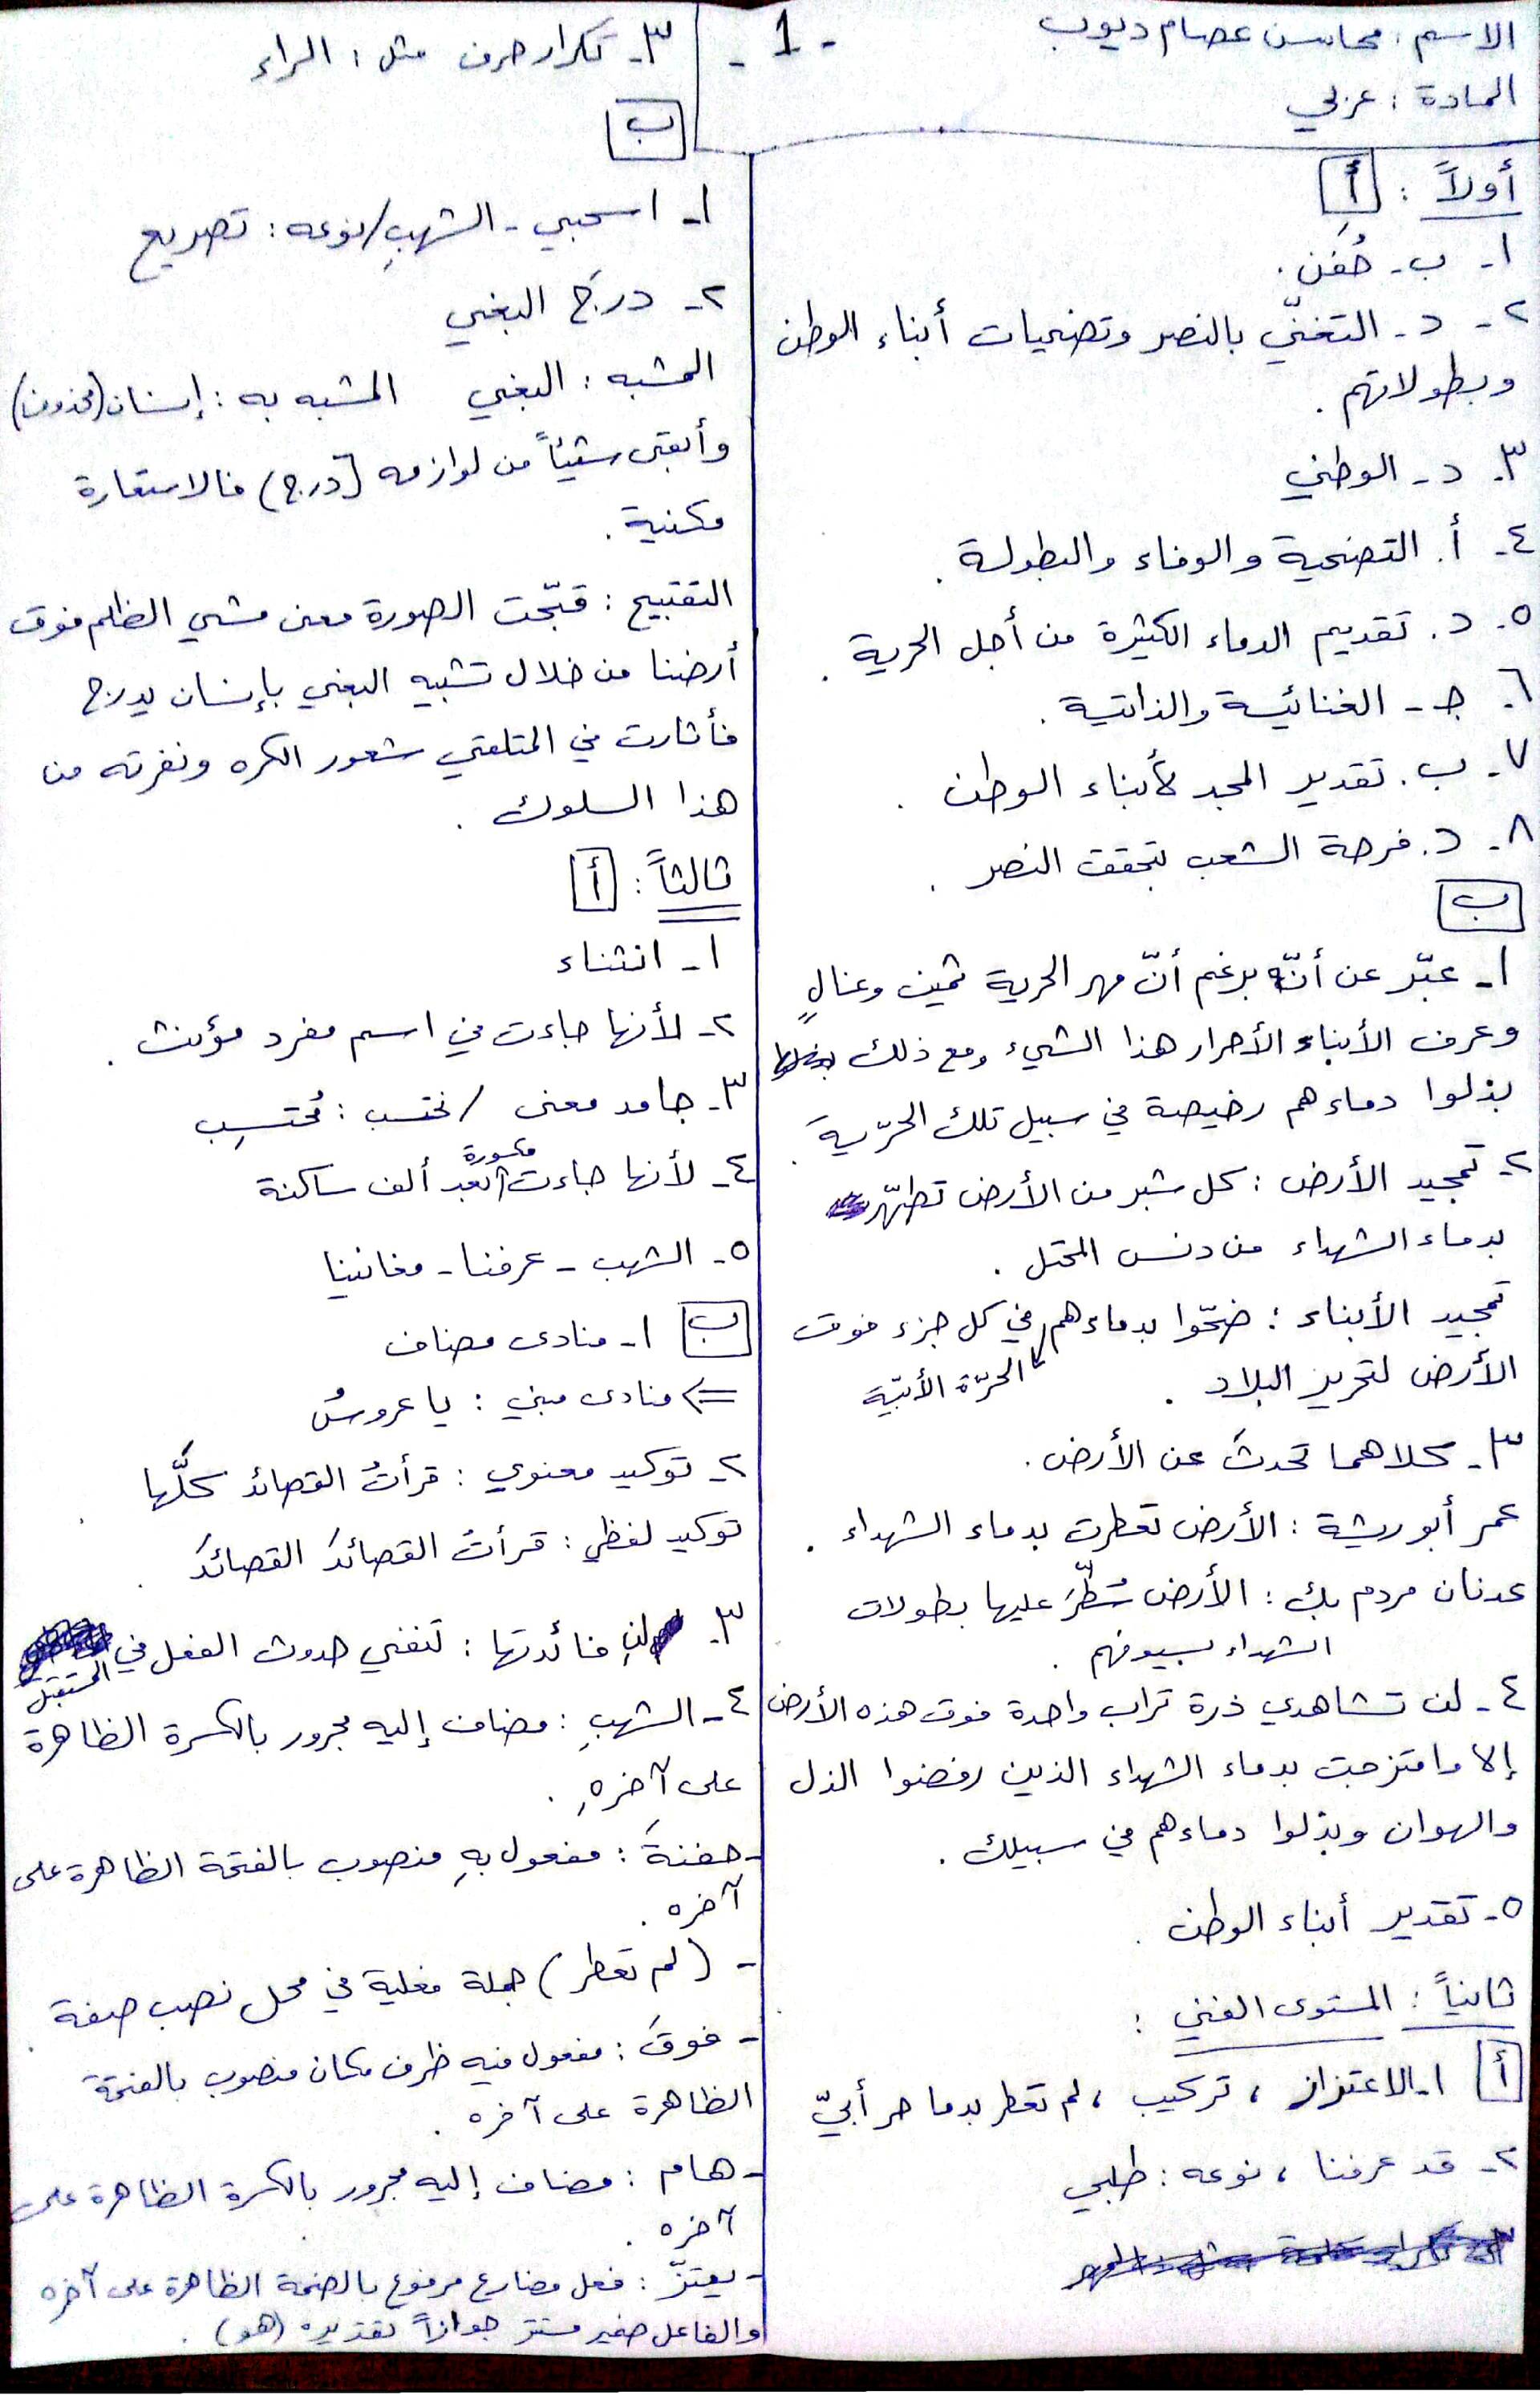 الاسم : محاسن عصام ديوب
المادة : عربي
- 1 -
أولاً : أ
١- ب - حُفَن .
٢- د - التغنّي بالنصر وتضحيات أبناء الوطن
وبطولاتهم .
٣- د - الوطني
٤- أ . التضحية والوفاء والبطولة .
٥- د . تقديم الدماء الكثيرة من أجل الحرية .
٦- جـ - الغنائية والذاتية .
٧- ب . تقدير المجد لأبناء الوطن .
٨- د . فرحة الشعب بتحقق النصر .
ب
١- عبّر عن أنّه برغم أنّ مهر الحرية ثمين وغالٍ
وعرف الأبناء الأحرار هذا الشيء ومع ذلك
بذلوا دماءهم رخيصة في سبيل تلك الحرّية .
٢- تمجيد الأرض : كل شبر من الأرض تطهّر
بدماء الشهداء من دنس المحتل .
تمجيد الأبناء : ضحّوا بدماءهم في كل جزء فوق
الحرّة الأبيّة
الأرض لتحرير البلاد .
٣- كلاهما تحدثَ عن الأرض .
عمر أبو ريشة : الأرض تعطرت بدماء الشهداء .
عدنان مردم بك : الأرض سُطِّرَ عليها بطولات
الشهداء بسيوفهم .
٤- لن تشاهدي ذرة تراب واحدة فوق هذه الأرض
إلا وامتزجت بدماء الشهداء الذين رفضوا الذل
والهوان وبذلوا دماءهم في سبيلك .
٥- تقدير أبناء الوطن .
ثانياً : المستوى الفني :
أ ١- الاعتزاز ، تركيب ، لم تعطر بدما حر أبيّ
٢- قد عرفنا ، نوعه : طلبي
٣- تكرار حرف مثل : الراء
ب
١- اسحبي - الشهبِ / نوعه : تصريع
٢- درجَ البغي
المشبه : البغي المشبه به : إنسان (محذوف)
وأبقى شيئاً من لوازمه (درج) فالاستعارة
مكنية .
التقبيح : قبّحت الصورة معنى مشي الظلم فوق
أرضنا من خلال تشبيه البغي بإنسان يدرج
فأثارت في المتلقي شعور الكره ونفرته من
هذا السلوك .
ثالثاً : أ
١- انثناء
٢- لأنها جاءت في اسم مفرد مؤنث .
٣- جامد معنى / نحتسب : مُحتسِب
مكسورة
٤- لأنها جاءت بعد ألف ساكنة
٥- الشهب - عرفنا - مغانينا
ب ١- منادى مضاف
<= منادى مبني : يا عروسُ
٢- توكيد معنوي : قرأتُ القصائد كلَّها .
توكيد لفظي : قرأت القصائدَ القصائدَ .
٣- لن فائدتها : تنفي حدوث الفعل في
المستقبل
٤- الشهبِ : مضاف إليه مجرور بالكسرة الظاهرة
على آخرهِ .
- حفنةَ : مفعول بهِ منصوب بالفتحة الظاهرة على
آخره .
- (لم تعطر) جملة فعلية في محل نصب صفة .
- فوقَ : مفعول فيه ظرف مكان منصوب بالفتحة
الظاهرة على آخره .
- هام : مضاف إليه مجرور بالكسرة الظاهرة على
آخره .
- يعتزّ : فعل مضارع مرفوع بالضمة الظاهرة على آخره
والفاعل ضمير مستتر جوازاً تقديره (هو) .